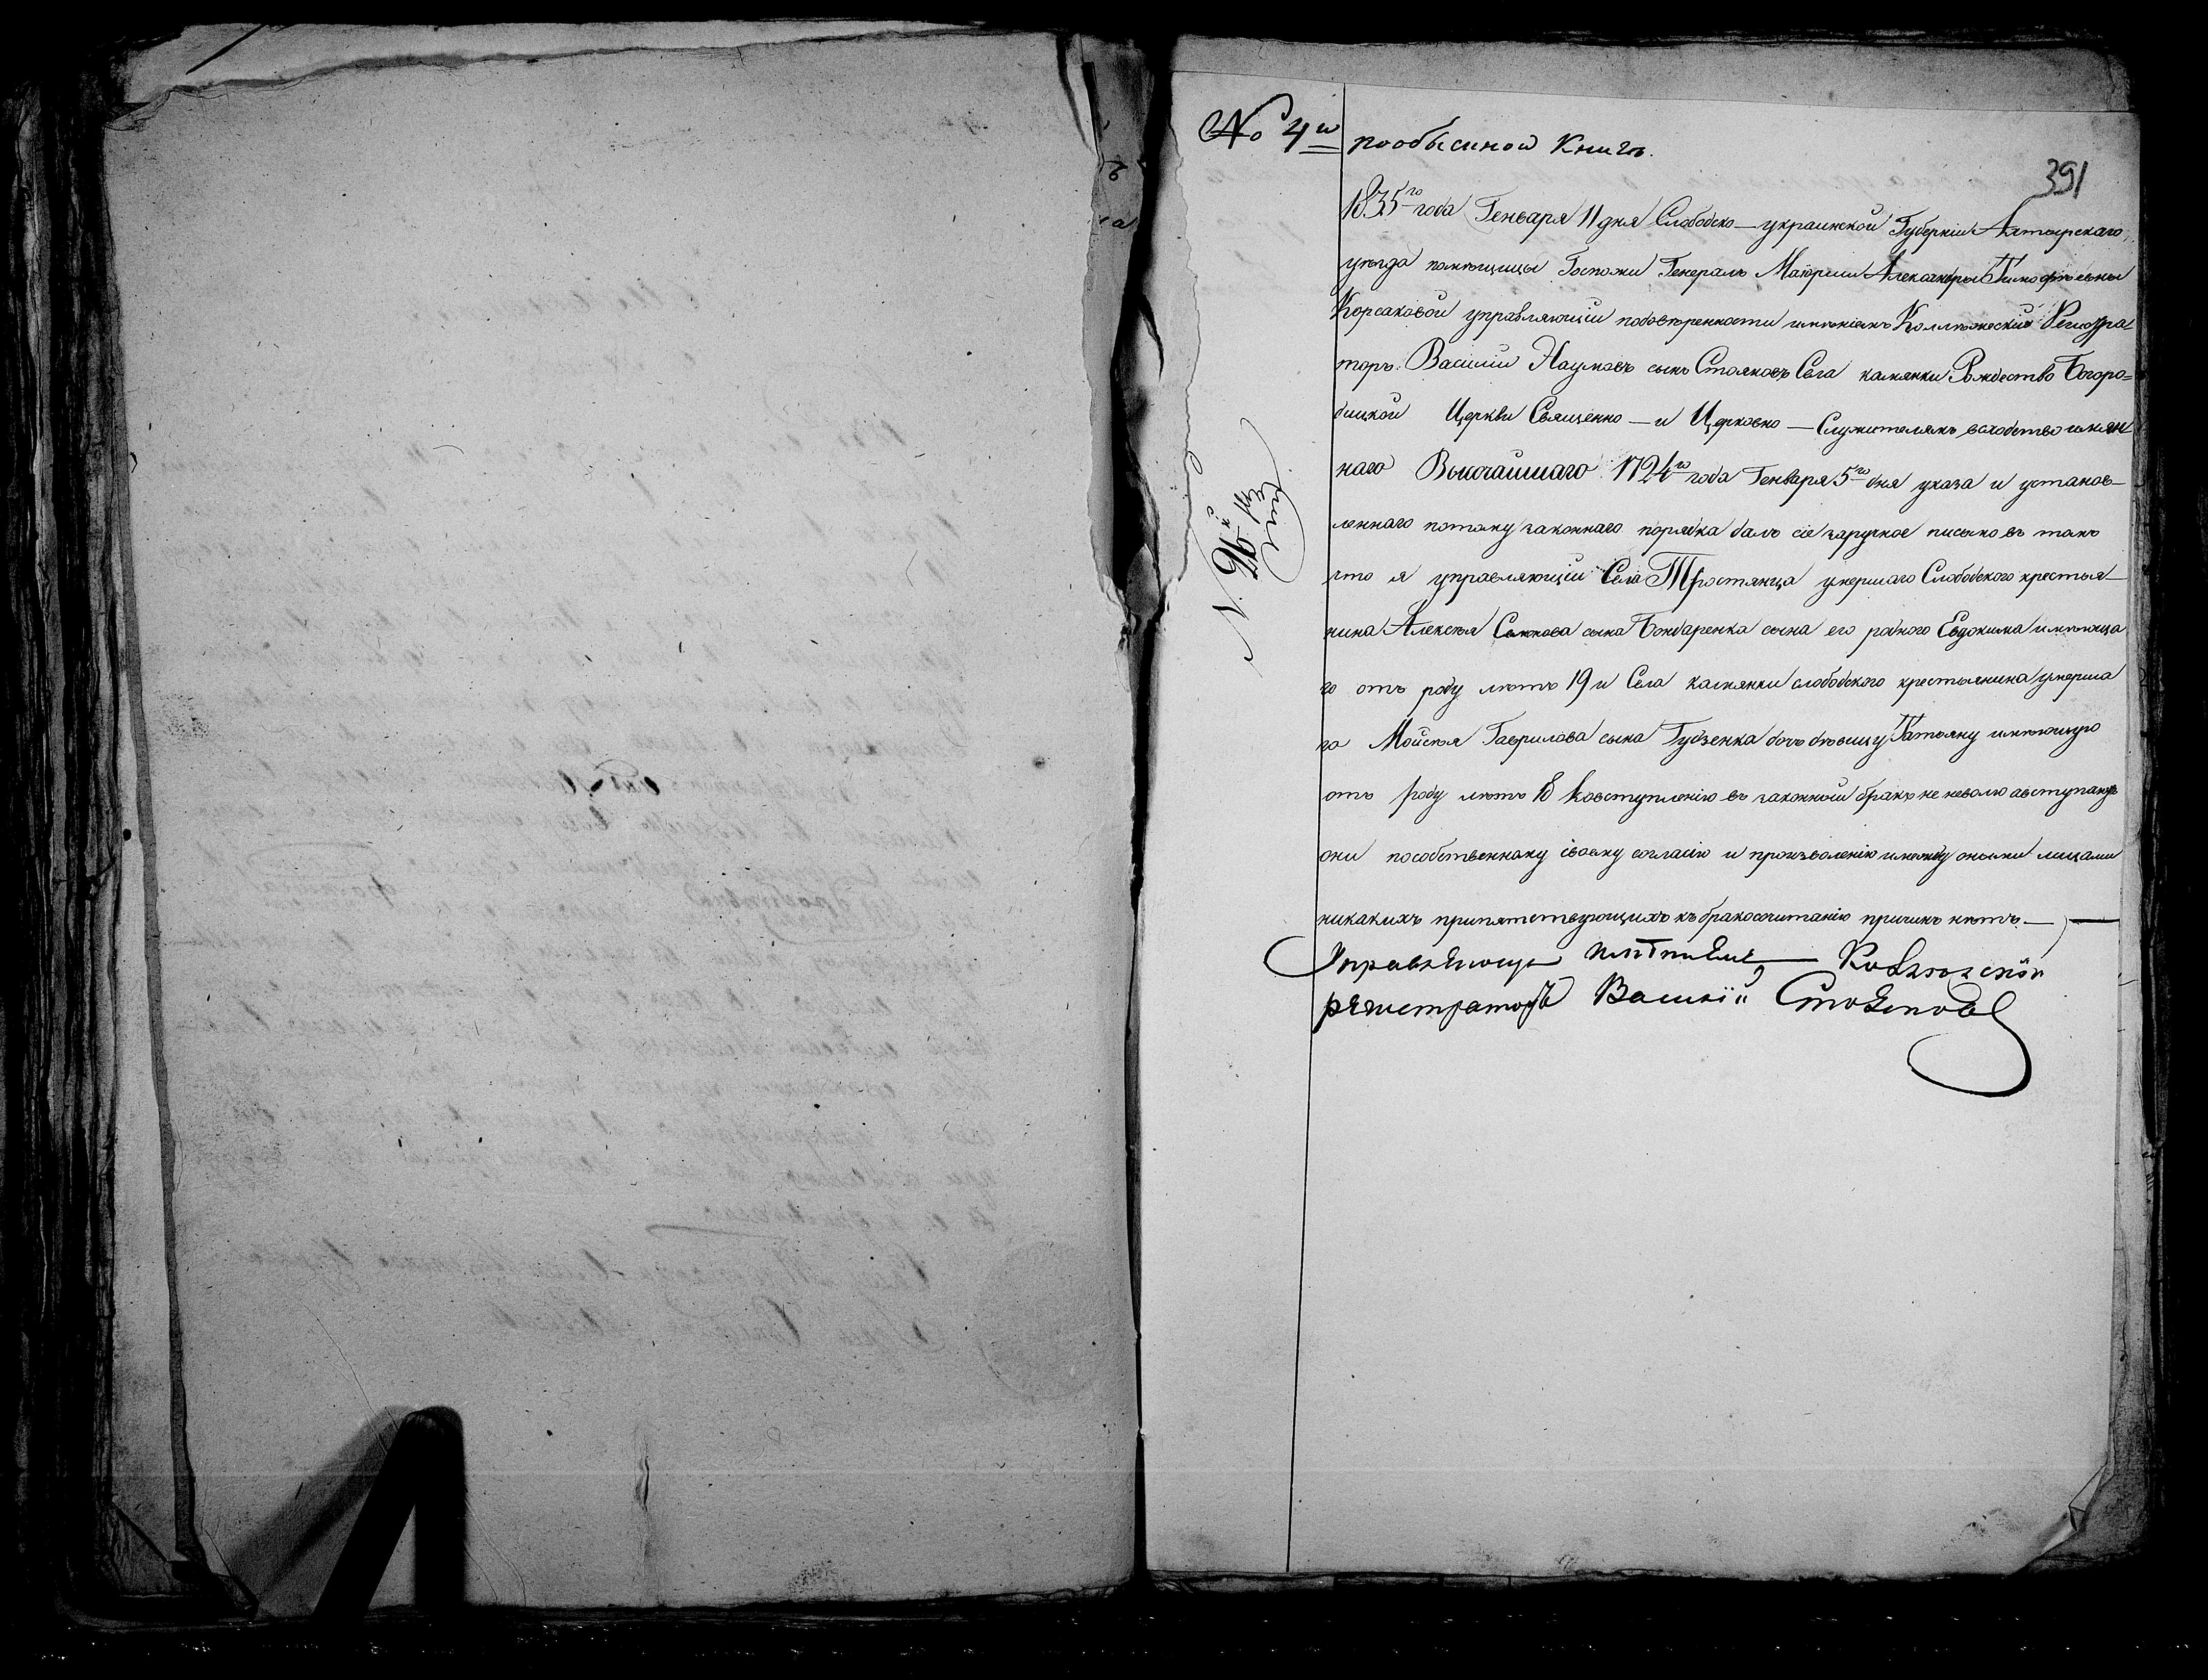 № 4й пообыскной Книги.
391
1835го года Генваря 11 дня Слободско—украинской Губернии Ахтырскаго
уезда помещицы Госпожи Генералъ Маіорши Александры Тимофѣевны
Корсаковой управляющій подовѣренности имѣніемъ Коллѣжеский Регистра
торъ Василий Наумовъ сынъ Стояновъ Села камянки Рождество Богоро=
дицкой Церкви Священно—и Церковно—Служителямъ всходство имян
наго Высочайшаго 1724го года Генваря 5го дня указа и установ—
леннаго потому законнаго порядка далъ сіе заручное писмо въ томъ
что я управляющій Села Тростянца умершаго Слободского крестья—
нина Алексѣя Семнова сына Бондаренка сына его родного Евдокима имѣюща
го отъ роду летъ 19 и Села камянки слободского крестьянина умерша
го Мойсѣя Гаврилова сына Гудзенка дочь дѣвицу Татьяну имѣющую
отъ роду лѣтъ 18 ковступленію въ законной бракъ не неволю авступаютъ
они пособственному своему согласію и произволенію имежду оными лицами
никакихъ припятствующихъ къ бракосочитанію причинъ нѣтъ.—
Управляющи имѣниемъ— Колѣжской
регистраторъ Василій Стояновъ
N. 26.